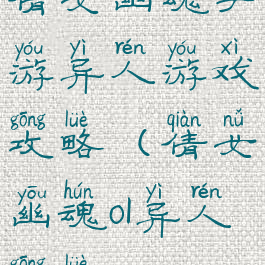 yóu yì rén yóu xì
游异人游戏
gōng lüè qiàn nǚ
攻略（倩女
yōu hún yì rén
幽魂01异人
gōng lüè